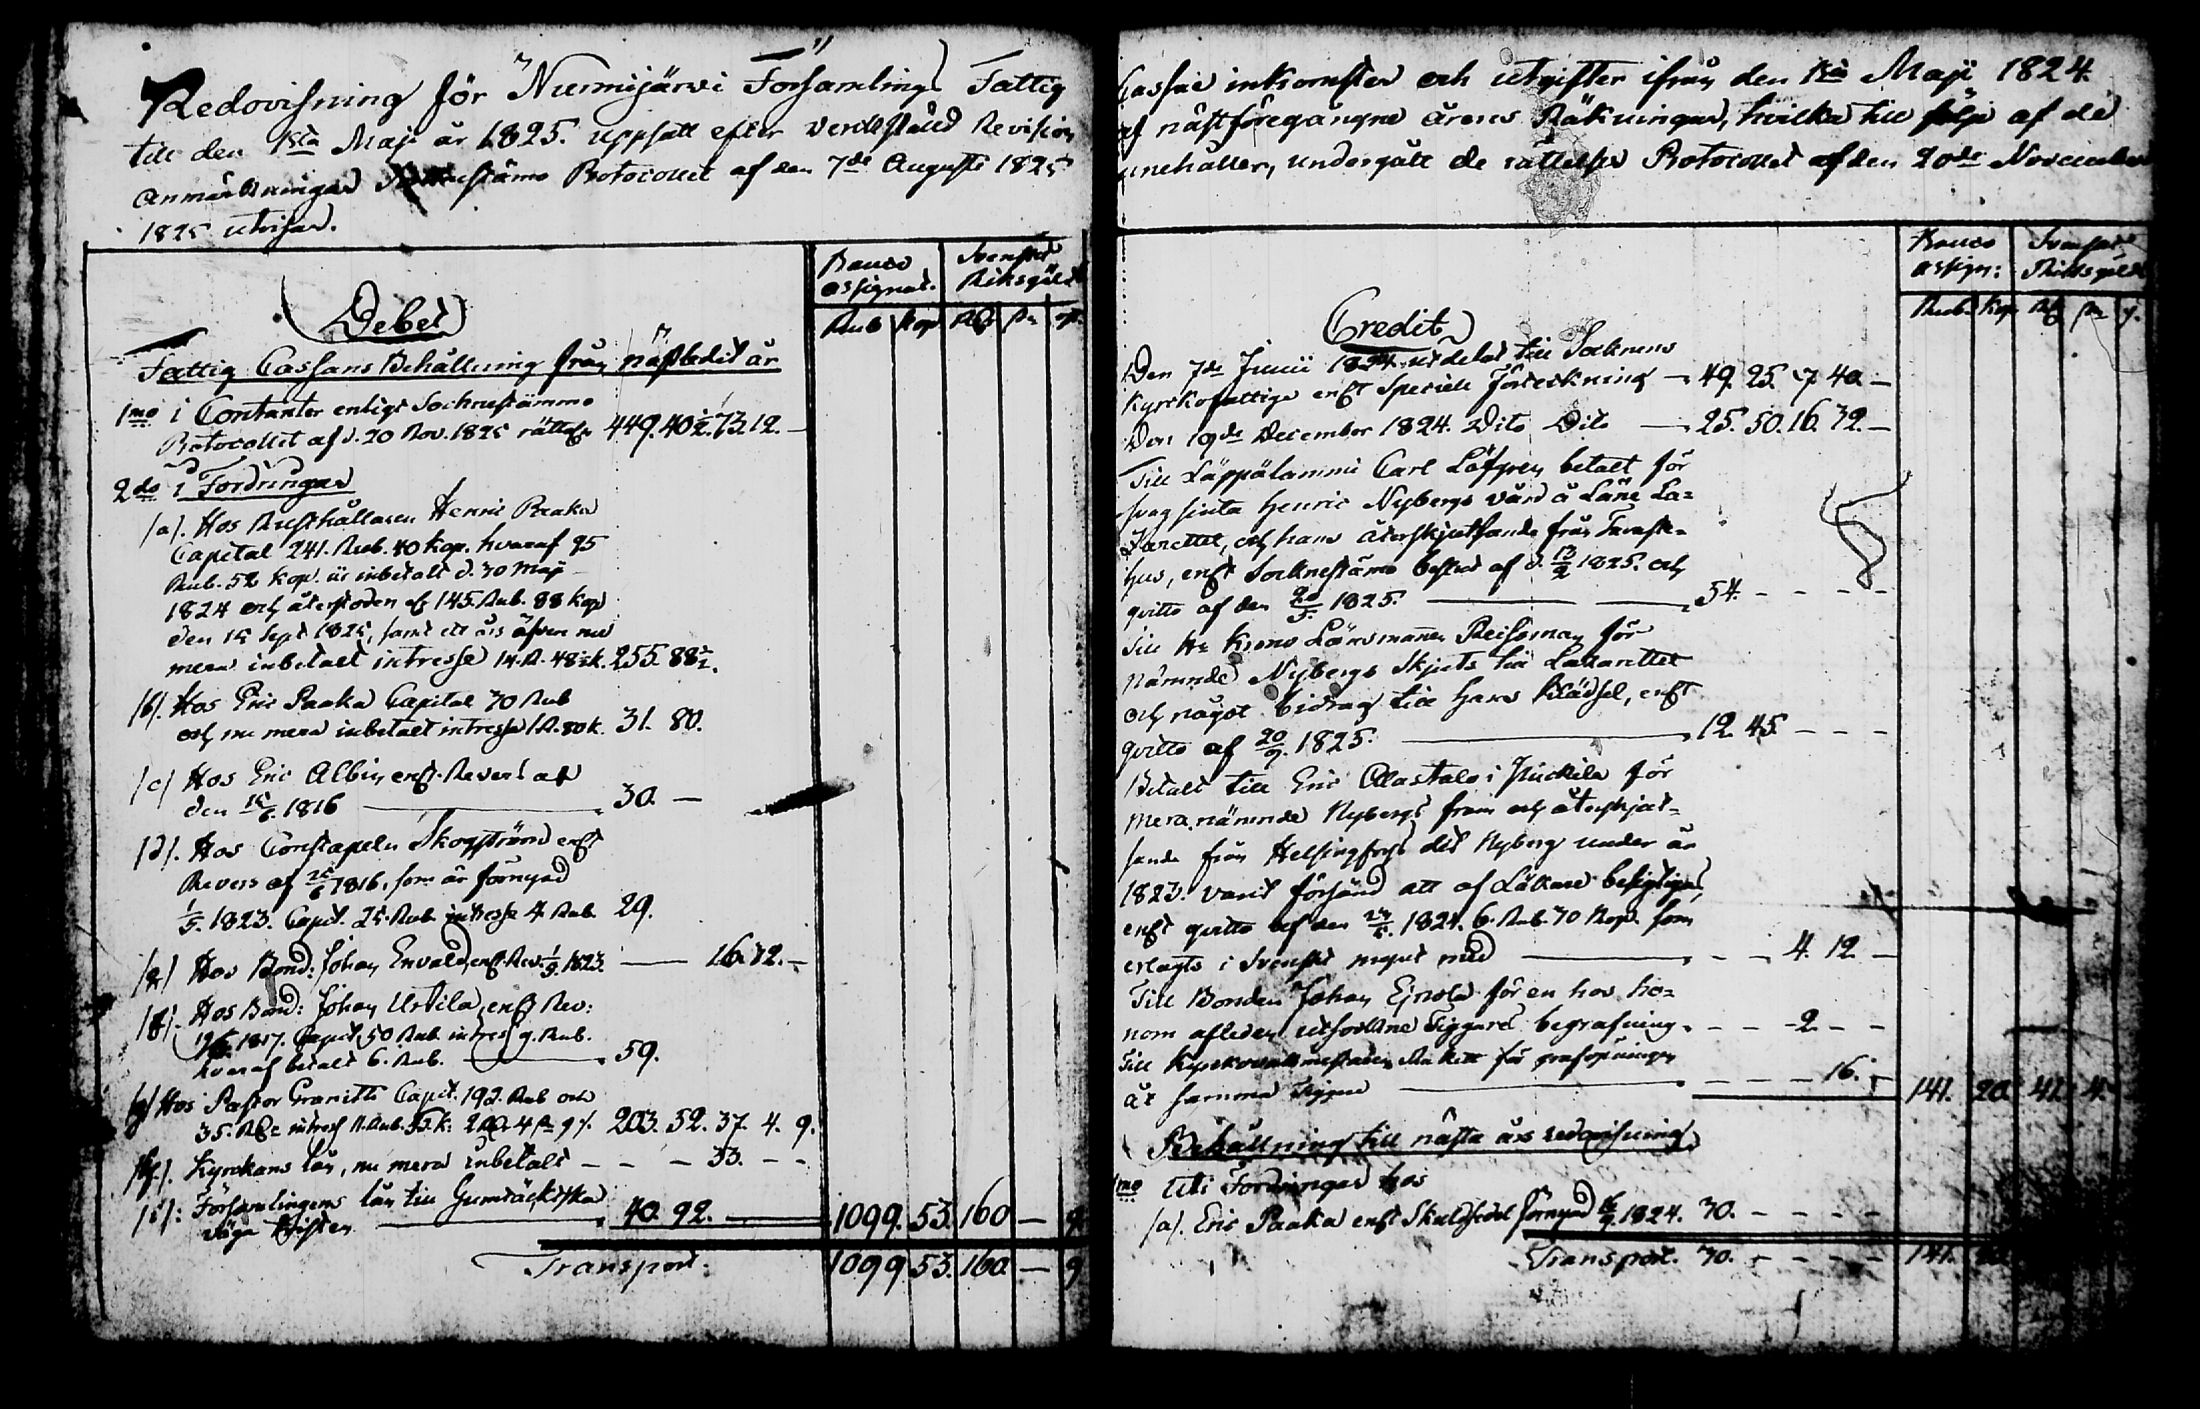 Redovisning för Nurmijärvi Församlings Fattig
till den 1sta Maji år 1825. uppsatt efter verkstäld Revision
anmärkningar Protocollet af den 7de Augusti 1825
1825 utvisar.
Banco
assignat.
Svenskt
Riksgäld
Rub Kop
Debet
Fattig Cassans Behållning från nästledit år
1mo i Contanter enligt Socknestämmo
Protocollet af d. 20 Nov. 1825 449. 40½. 73. 12. —
2do i Fordringar
/a/. Hos Rusthållaren Henric Raaka
Capital 241. Rub. 40 Kop. hvaraf 95
Rub. 52 Kop. är inbetalt d. 30 Maji
1824 och återstoden af 145. Rub. 88 Kop
den 15 Sept 1825, samt ett års äfven nu
mera inbetalt intresse 14. R. 48½ k. 255. 88½.
/b/. Hos Eric Raaka Capital 30 Rub
och nu mera inbetalt intresse 1 R. 80 k. 31. 80.
/c/ Hos Eric Albin enl. Revers af
den 1816 — 30. —
/d/. Hos Constapeln Skogström enl
Revers af 1816. som är förnyad
1/5. 1823. Capit. 25. Rub. intresse 4. Rub. 29.
/e/ Hos Bond: Johan Envald, enl. Rev. 1/5. 1823. — 16. 32. —
/f/. Hos Bond: Johan Uotila, enl Rev:
1817. Capit. 50 Rub. intres 9. Rub.
hvaraf betalt 6. Rub. — 59.
/g/ Hos Pastor Granitts Capit. 192. Rub och
203. 52. 37. 4. 9.
/h/. Kyrckans lån, nu mera inbetalt — — — 33. — —
/i/: Församlingens lån till
40. 92. — 1099. 53. 160 — 9
Transport. 1099 53. 160. — 9
Cassae inkomster och utgifter ifrån den 1sta Maji 1824.
af nästföregångne årens Räkningar, hvilka till följe af de
innehåller, undergått de rättelser Protocollet af den 20de November
Banco
assign:
Svenskt
Riksgäld
Rub. Kop
Credit
Den 7de Junii 1824. utdelat till Socknens
Kyrkofattige enl Speciell Förteckning — 49. 25. 7. 40. —
Den 19de December 1824. Dito Dito — 25. 50. 16. 32. —
Till Carl Löfgren betalt för
svagsinta Henric Nybergs vård å Läne La=
zarettet, och hans återskjutsande från Tavaste=
hus, enl Socknestämo beslut af d. 13/2 1825. och
qvitto af den 20/5. 1825. — 54. — — —
Till Hr Krono Länsmannen för
nämnde Nybergs Skjuts till Lazarettet
och något bidrag till hans klädsel, enl
qvitto af 1825. — 12. 45. — — —
Betalt till Eric Alastalo i för
mera nämnde Nybergs fram och återskjut=
sande från Helsingfors dit Nyberg under år
1823. varit försänd att af Läkare besigtigas,
enl qvitto af den 1824. 6. Rub. 30 Kop. som
erlagts i Svenskt mynt med — — — 4. 12 —
Till Bonden Johan för en hos ho=
nom afleden Tiggares begrafning. — — 2. — —
Till för graföpningen
åt samma — — — — 16. — 141. 20. 41. 4.
Behållning till nästa års redovisning
1mo uti Fordringar hos
/a/. Eric Raaka enl Skuldsedel förnyad 1824. 30. — — — —
Transport. 30. — — — — 141.